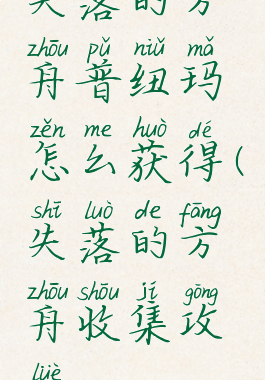 失落的方
zhōu pǔ niǔ mǎ
舟普纽玛
zěn me huò dé
怎么获得(
shī luò de fāng
失落的方
zhōu shōu jí gōng
舟收集攻
lüè